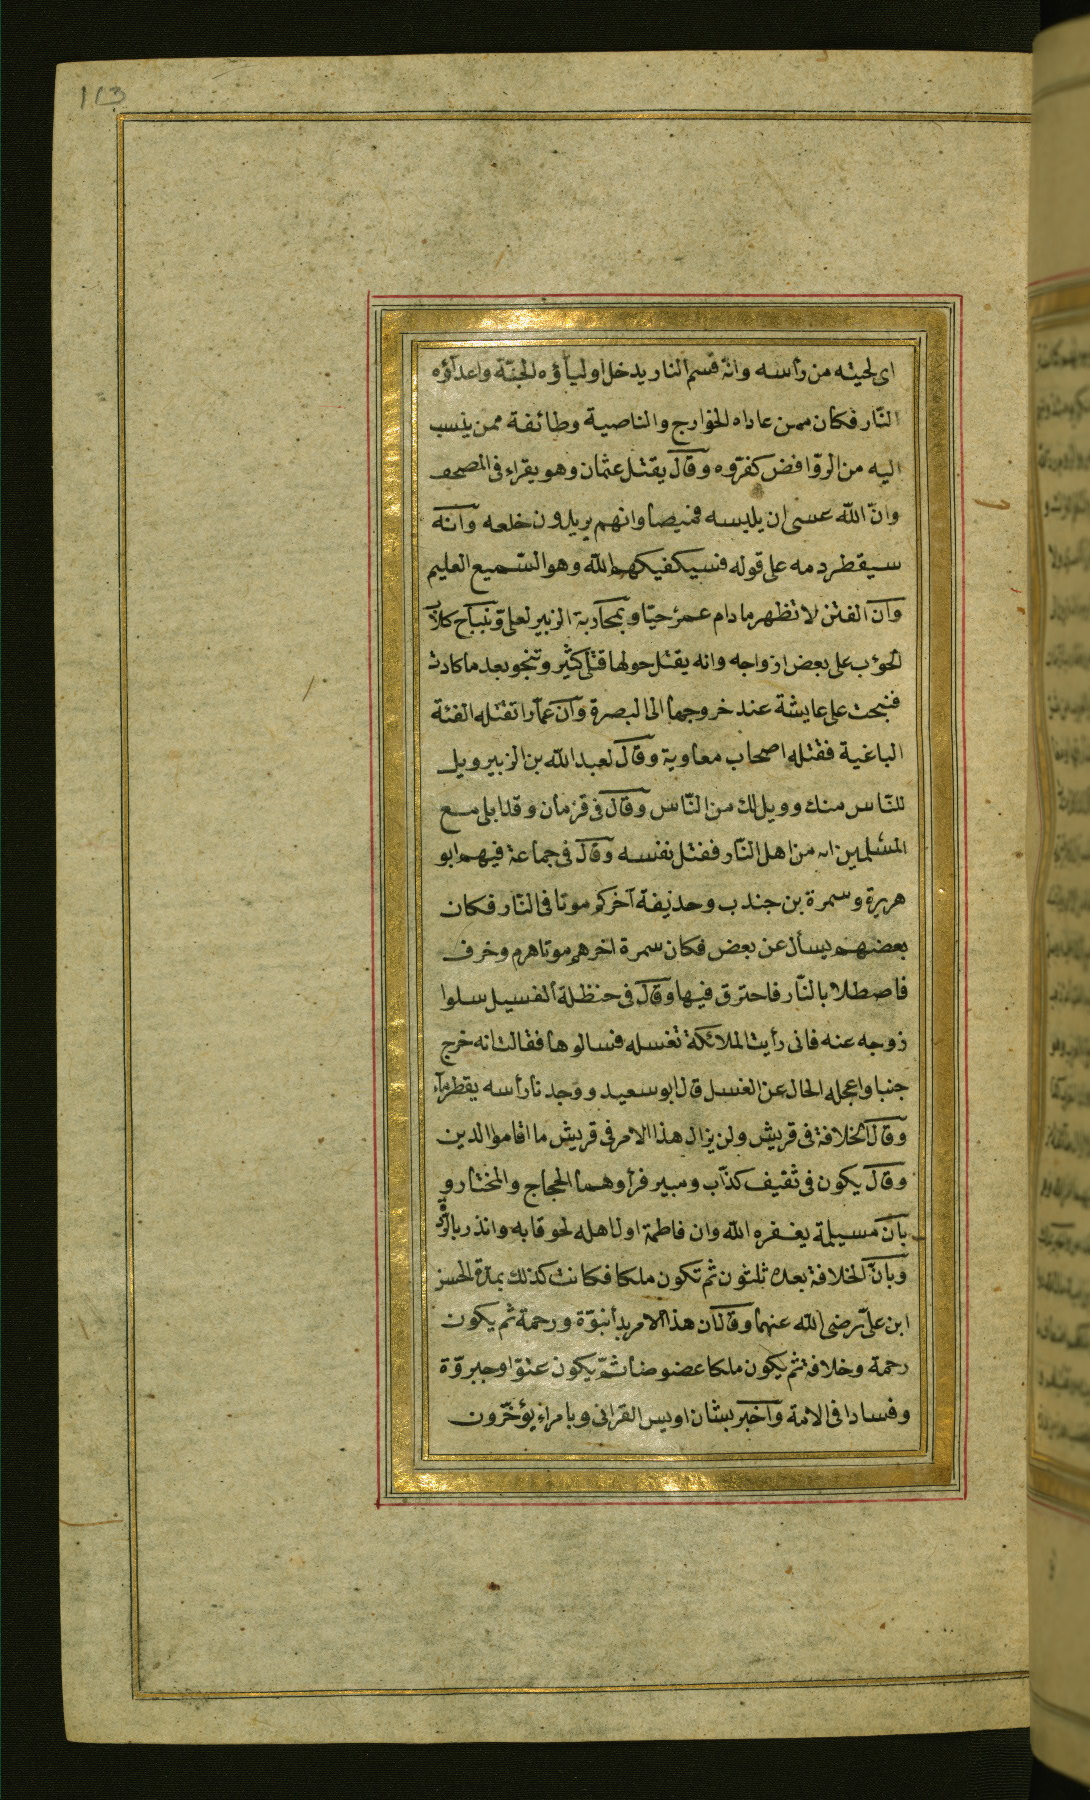 113
اى لحيته من رأسه وانّه قسم النار يدخل اوليأؤه الجنّة واعدآؤه
النّار فكان ممن عاداه الخوارج والناصبة وطائفة ممن ينسب
اليه من الروّافض كفرّوه وقال يقتل عثمان وهو يقراء فى المصحف
وانّ الله عسى ان يلبسه قميصا وانهم يريدون خلعه وانّه
سيقطر دمه على قوله فسيكفيكهم الله وهو السّميع العليم
وان الفتن لا تظهر مادام عمر حيّا وبمحاربة الزبير لعلى وبنباح كلاب
الحوءب على بعض ازواجه وانه يقتل حولها قتلى كثير وتنجو بعد ما كادت
فنبحت على عايشة عند خروجها الى البصرة وان عمّارا تقتله الفئة
الباغية فقتله اصحاب معاوية وقال لعبد الله بن الزبير ويل
للنّاس منك وويل لك من النّاس وقال فى قزمان وقد ابلى مع
المسلمين انه من اهل النّار فقتل نفسه وقال فى جماعة فيهم ابو
هريرة وسمرة بن جندب وحذيفة آخركم موتا فى النّار فكان
بعضهم يسأل عن بعض فكان سمرة اخرهم موتا هرم وخرف
فاصطلا بالنّار فاحترق فيها وقال فى حنظلة الغسيل سلوا
زوجه عنه فانى رأيت الملائكة تغسله فسالوها فقالت انه خرج
جنبا واعجله الحال عن الغسل قال ابو سعيد ووجدنا رأسه يقطر مآء
وقال الخلافة فى قريش ولن يزال هذا الامر فى قريش ما اقاموا الدين
وقال يكون فى ثقيف كذّاب ومبير فرأوهما الحجاج والمختار و
بان مسيلمة يعقره الله وان فاطمة اول اهله لحوقا به وانذر بالرّدّة
وبانّ الخلافة بعده ثلثون ثم تكون ملكا فكانت كذلك بمدّة الحسن
ابن علىّ رضى الله عنهما وقال ان هذا الامر بدأ نبوّة ورحمة ثم يكون
رحمة وخلافة ثم يكون ملكا عضوضا ثمّ يكون عتوّا وجبروّة
وفسادا فى الامة واخبر بشان اويس القرانى وبامراء يؤخّرون